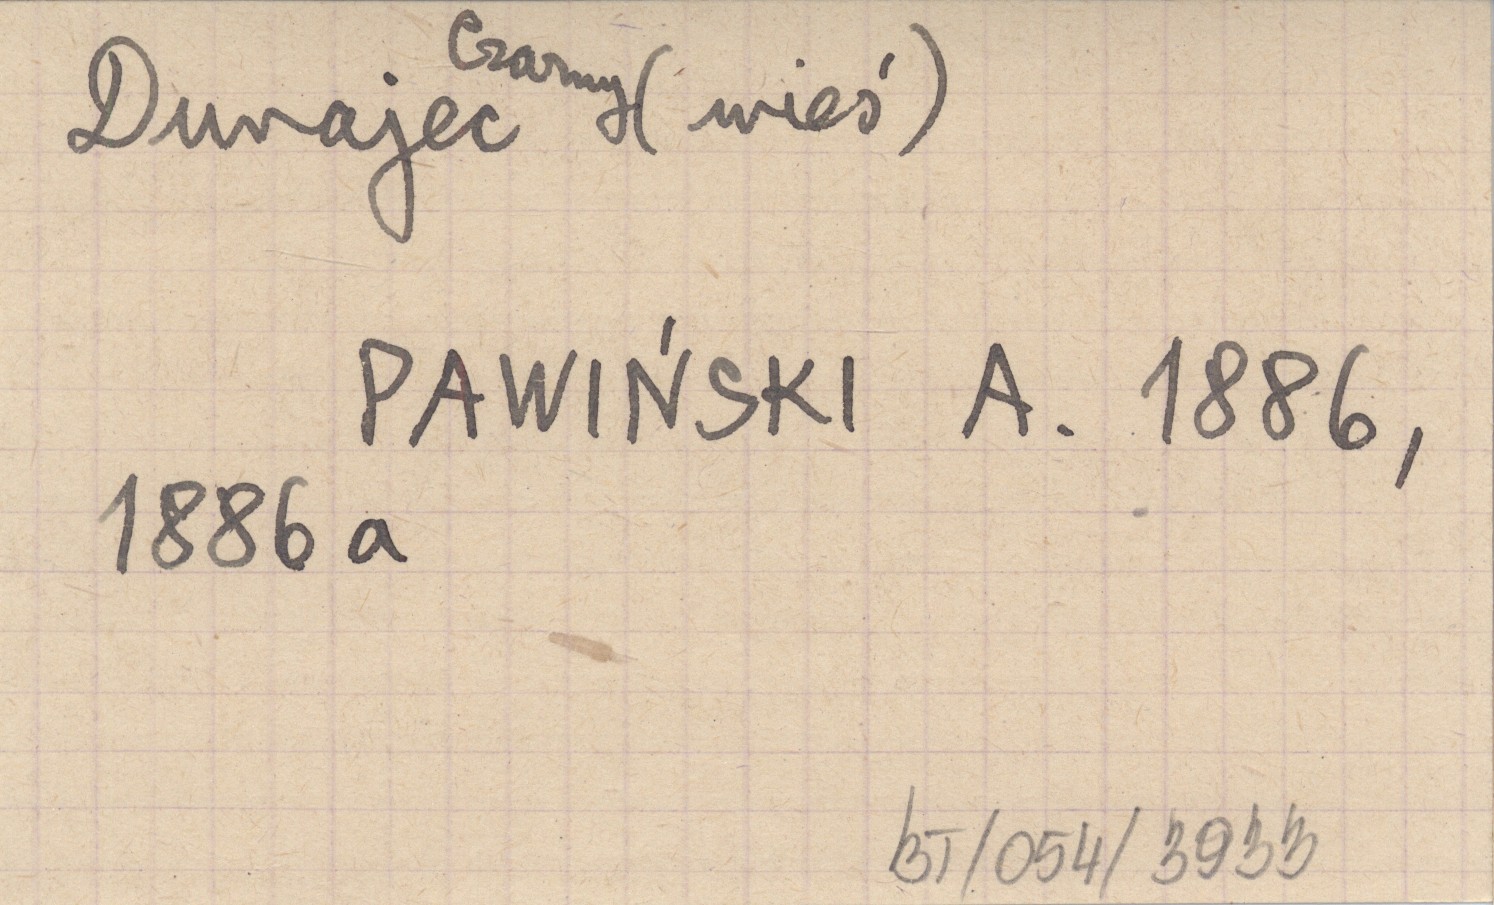 Dunajec Czarny (wieś)
PAWIŃSKI A. 1886,
1886a
BT/054/3933